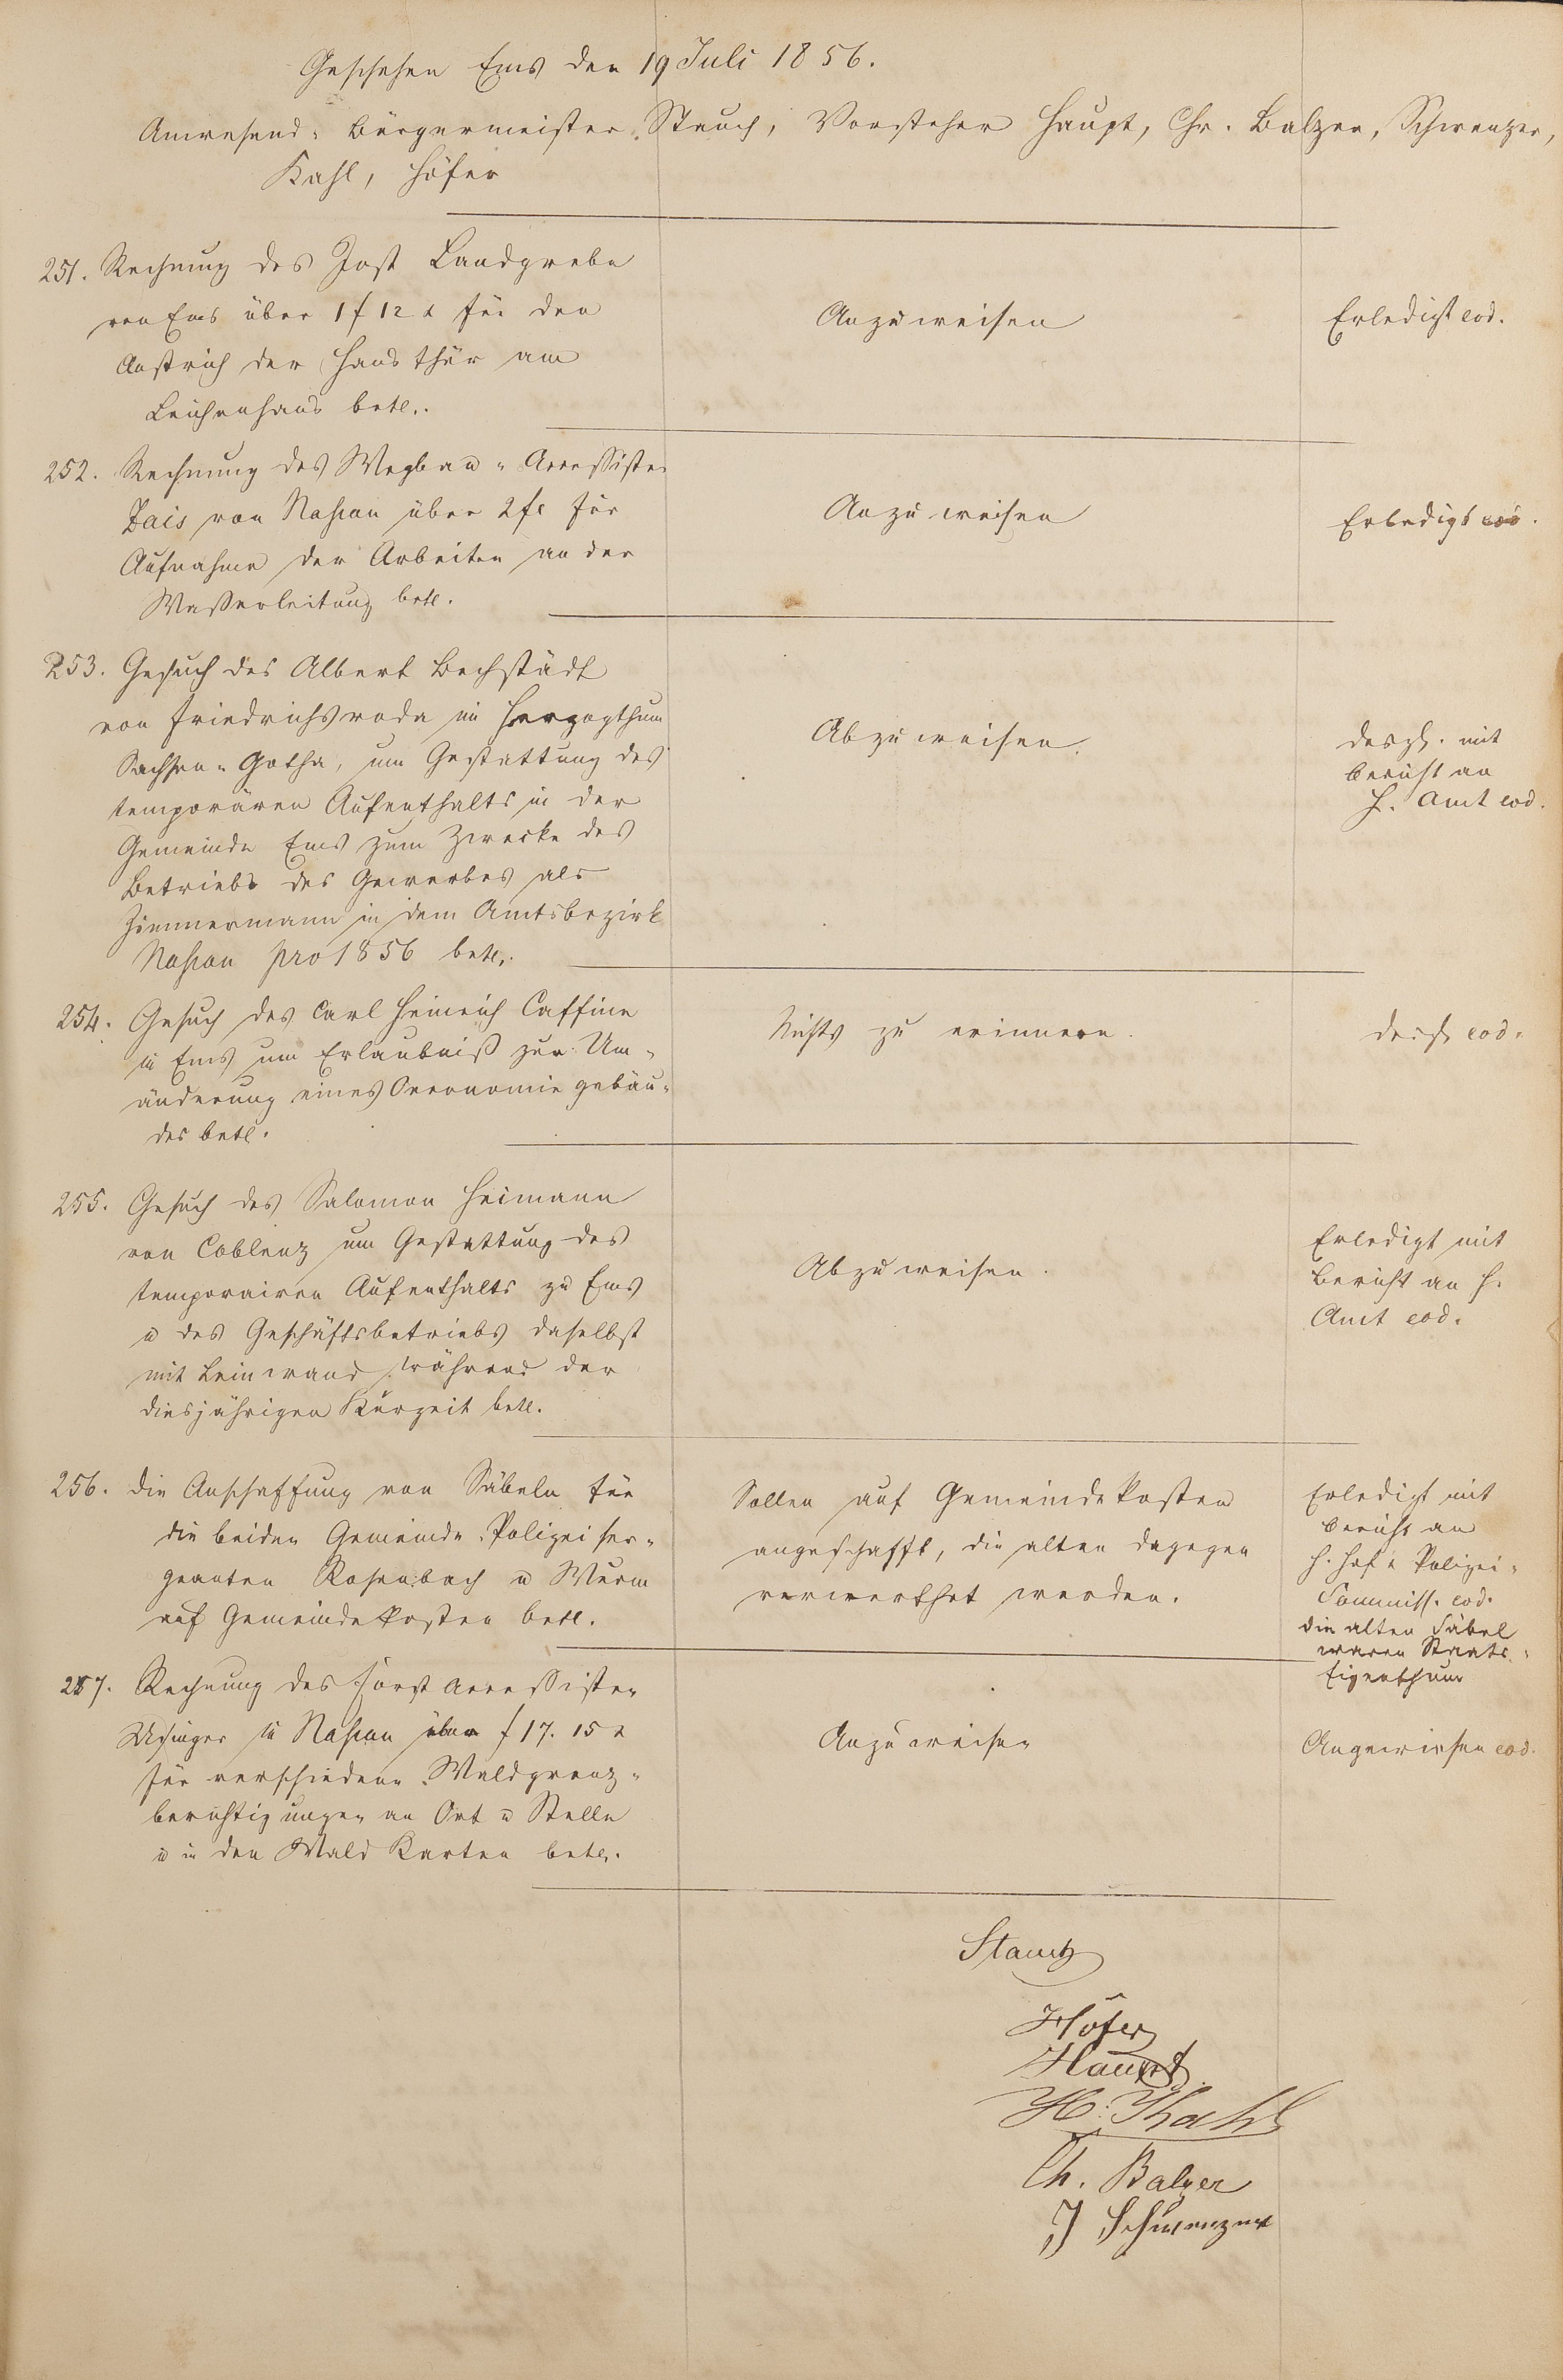 Geschehen Ems den 19 Juli 1856.
Anwesend: Bürgermeister Stauch, Vorsteher Haupt, Chr. Balzer, Schwenzer,
Kahl, Höfer
251. Rechnung des Jost Landgrebe
von Ems über 1 f 12 x für den
Anstrich der Hausthür am
Leichenhaus betr.
Anzuweisen
Erledigt eod.
252. Rechnung des Wegbau-Accessisten
Zais von Nassau über 2 fl für
Aufnahme der Arbeiten an der
Wasserleitung betr.
Anzuweisen
Erledigt eod.
253. Gesuch des Albert Bechstädt
von Friedrichsroda im Herzogthum
Sachsen-Gotha, um Gestattung des
temporären Aufenthalts in der
Gemeinde Ems zum Zwecke des
Betriebs des Gewerbes als
Zimmermann in dem Amtsbezirk
Nassau pro 1856 betr.
Abzuweisen.
desgl. mit
Bericht an
H. Amt eod.
254. Gesuch des Carl Heinrich Caffine
in Ems um Erlaubniß zur Um-
änderung eines Oeconomiegebäu-
des betr.
Nichts zu erinnern.
eod.
255. Gesuch des Salomon Heimann
von Coblenz um Gestattung des
temporairen Aufenthalts zu Ems
u des Geschäftsbetriebs daselbst
mit Leinwand während der
diesjährigen Kurzeit betr.
Abzuweisen.
Erledigt mit
Bericht an H.
Amt eod.
256. Die Anschaffung von Säbeln für
die beiden Gemeinde-Polizeiser-
geanten Rosenbach u Wurm
auf Gemeindekosten betr.
Sollen auf Gemeindekosten
angeschafft, die alten dagegen
verwerthet werden.
Erledigt mit
Bericht an
H. Hof & Polizei-
Commiss. eod.
die alten Säbel
waren Staats-
Eigenthum
257. Rechnung des Forst Accessisten
Usinger in Nassau über f 17. 15 x
für verschiedene Waldgrenz-
berichtigungen an Ort u Stelle
u in den Wald Karten betr.
Anzuweisen
Angewiesen eod.
Stauch
Höfer
Haupt
H. Kahl
Ch. Balzer
J Schwenzer